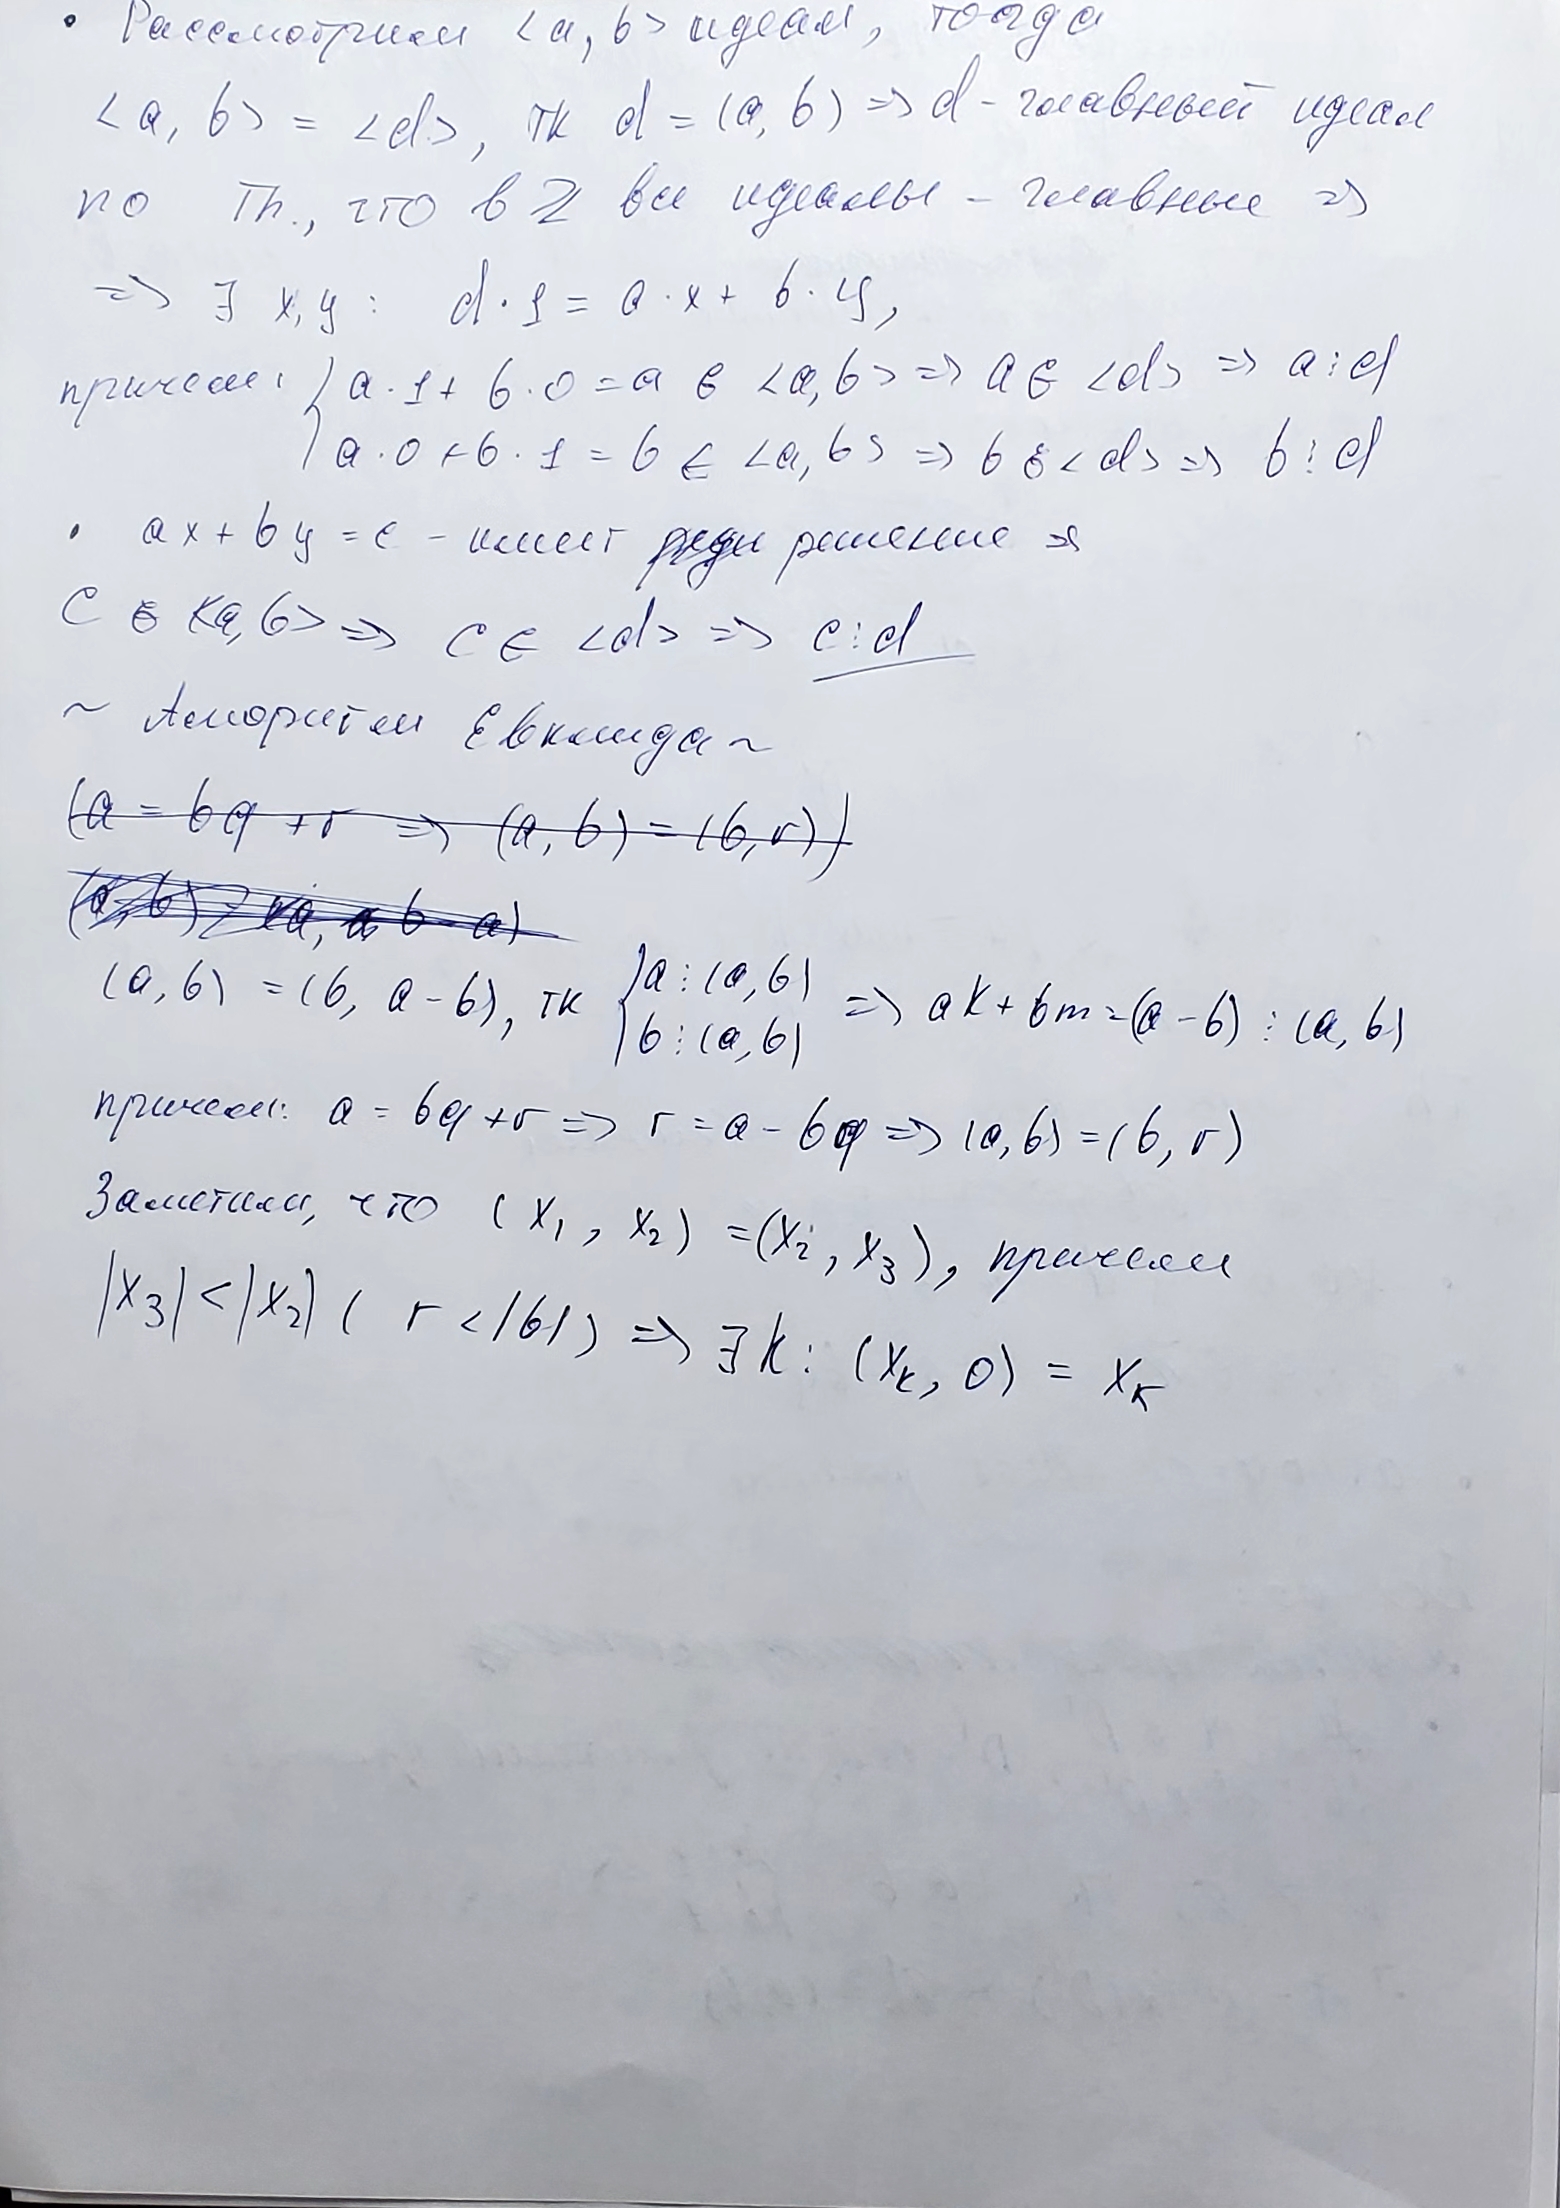 • Рассмотрим <a, b> идеал, тогда
<a, b> = <d>, тк d = (a, b) => d - главный идеал
по Th., что в ℤ все идеалы - главные =>
=> ∃ x, y : d · 1 = a · x + b · y,
причем: { a · 1 + b · 0 = a ∈ <a, b> => a ∈ <d> => a ⋮ d
a · 0 + b · 1 = b ∈ <a, b> => b ∈ <d> => b ⋮ d
• ax + by = c - имеет решение =>
c ∈ <a, b> => c ∈ <d> => c ⋮ d
~ Алгоритм Евклида ~
(a = bq + r => (a, b) = (b, r))
(a, b) = (a, b - a)
(a, b) = (b, a - b), тк { a ⋮ (a, b) => ak + bm = (a - b) ⋮ (a, b)
b ⋮ (a, b)
причем: a = bq + r => r = a - bq => (a, b) = (b, r)
Заметим, что (x₁, x₂) = (x₂, x₃), причем
|x₃| < |x₂| ( r < |b|) => ∃ k : (xₖ, 0) = xₖ